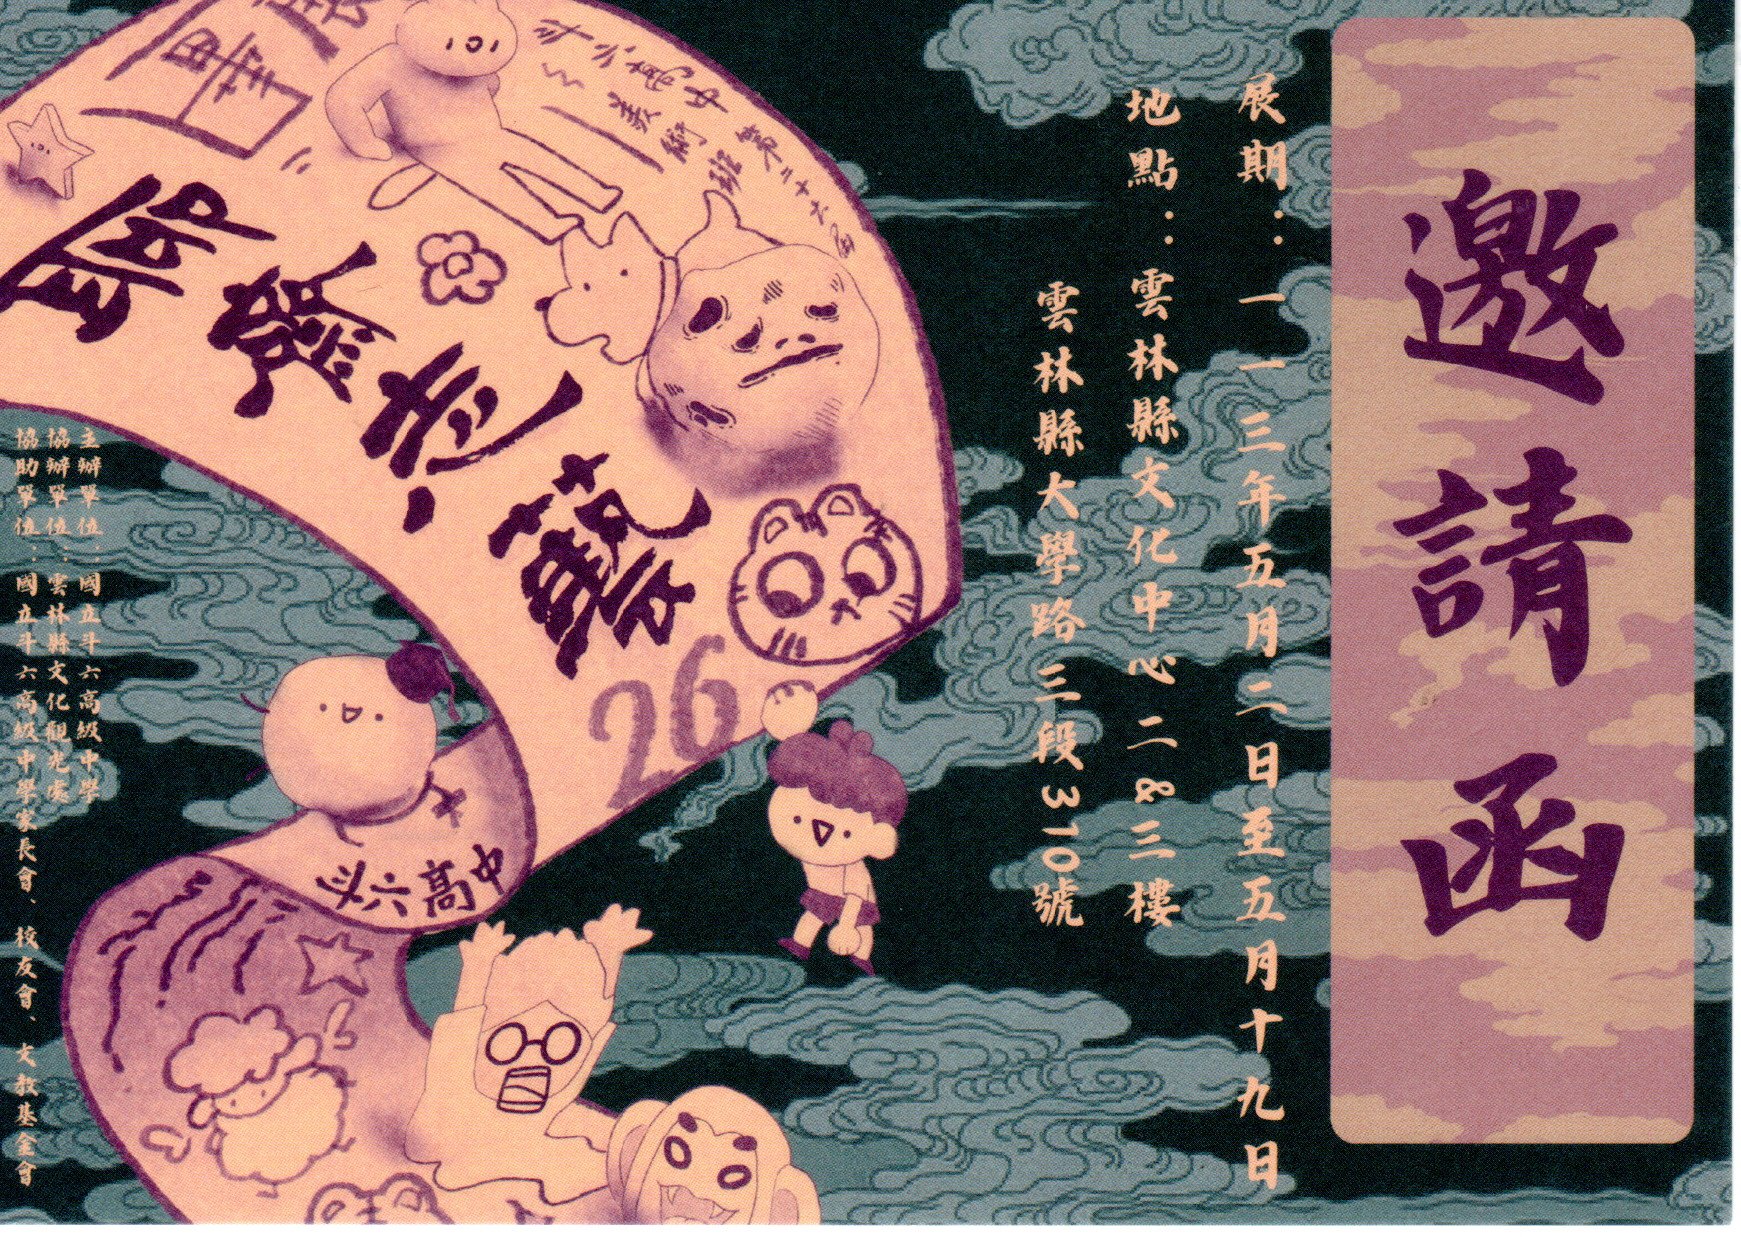 邀請函
展期：一一三年五月二日至五月十九日
地點：雲林縣文化中心二&三樓
雲林縣大學路三段310號
斗六高中
美術班
第二十六屆
聊齋志藝
26
斗六高中
主辦單位：國立斗六高級中學
協辦單位：雲林縣文化觀光處
協助單位：國立斗六高級中學家長會、校友會、文教基金會